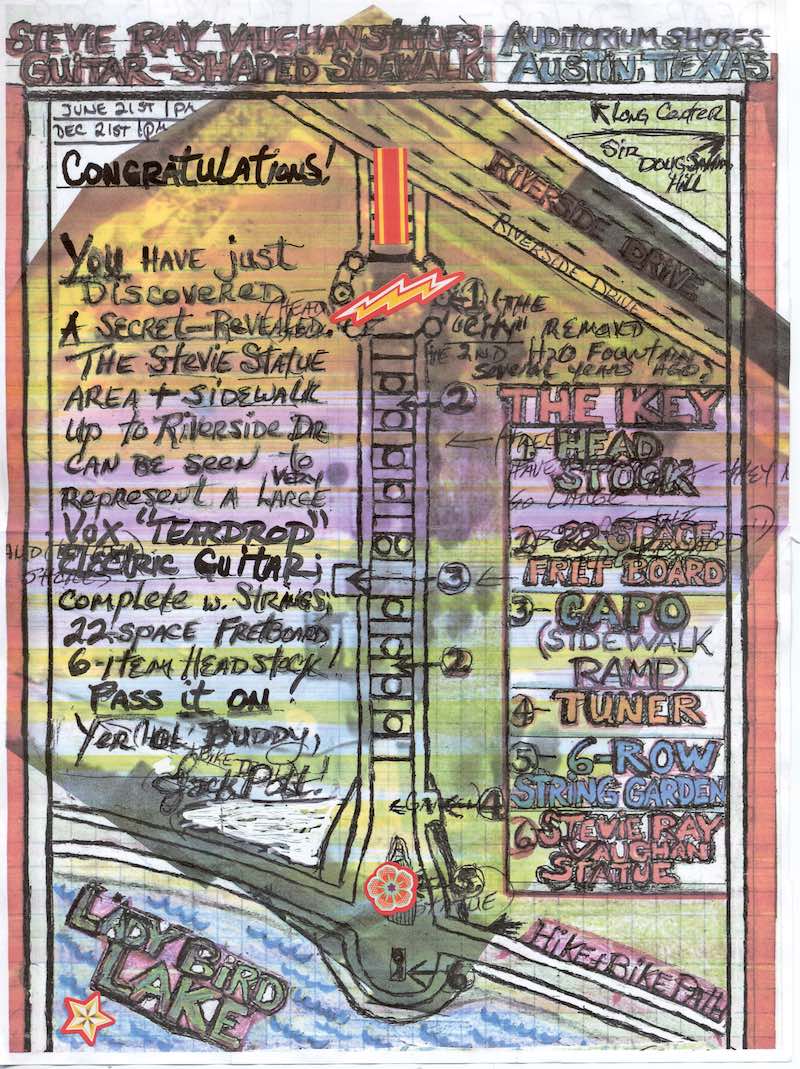 STEVIE RAY VAUGHAN STATUE'S
GUITAR-SHAPED SIDEWALK
AUDITORIUM SHORES
AUSTIN, TEXAS
JUNE 21ST 1PM
DEC 21ST 1PM
CONGRATULATIONS!
YOU HAVE just
DISCOVERED
A SECRET-REVEALED.
THE STEVIE STATUE
AREA + SIDEWALK
UP TO RIVERSIDE DR
CAN BE SEEN TO
REPRESENT A VERY LARGE
VOX "TEARDROP"
ELECTRIC GUITAR;
COMPLETE w. STRINGS,
22-SPACE FRETBOARD
6-ITEM HEADSTOCK!
PASS IT ON
YER OL' BUDDY,
Jack Pott!
Long Center
SIR
DOUG SAHM
Hill
RIVERSIDE DRIVE
RIVERSIDE DRIVE
1
(THE
"CITY" REMOVED
THE 2ND H2O FOUNTAIN
SEVERAL YEARS AGO?
2
3
2
4
5
6
THE KEY
1- HEAD
STOCK
2- 22-SPACE
FRET BOARD
3- CAPO
(SIDEWALK
RAMP)
4- TUNER
5- 6-ROW
STRING GARDEN
6 STEVIE RAY
VAUGHAN
STATUE
HIKE + BIKE PATH
LADY BIRD
LAKE